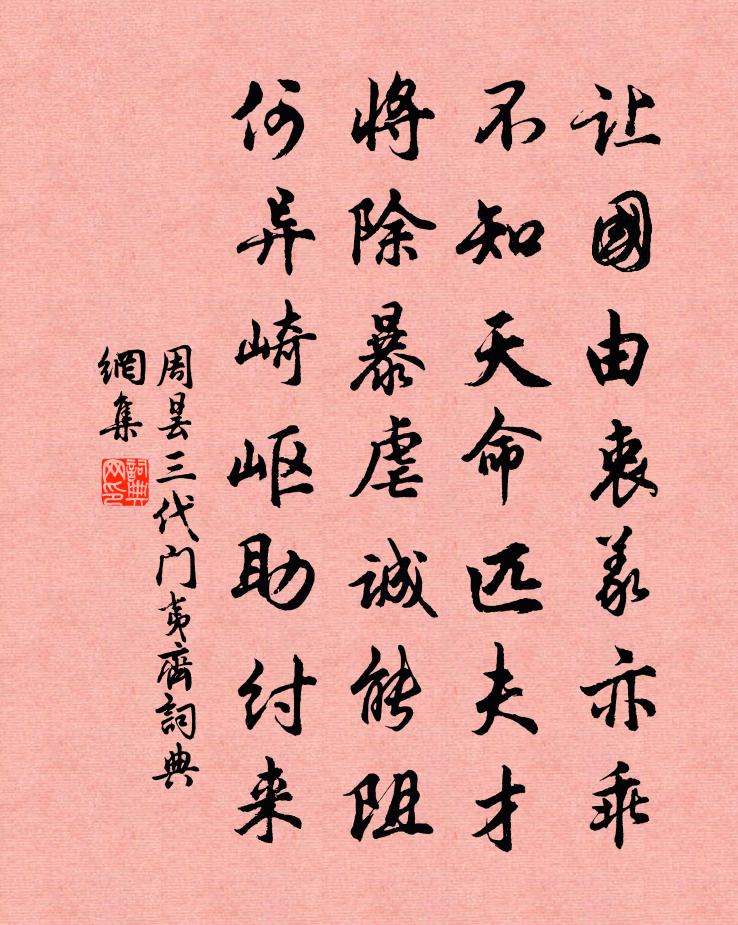 让國由衷義亦乖
不知天命匹夫才
將除暴虐誠能阻
何异崎岖助付来
周昙三代门夷齊詞典
網集
詞典
网印